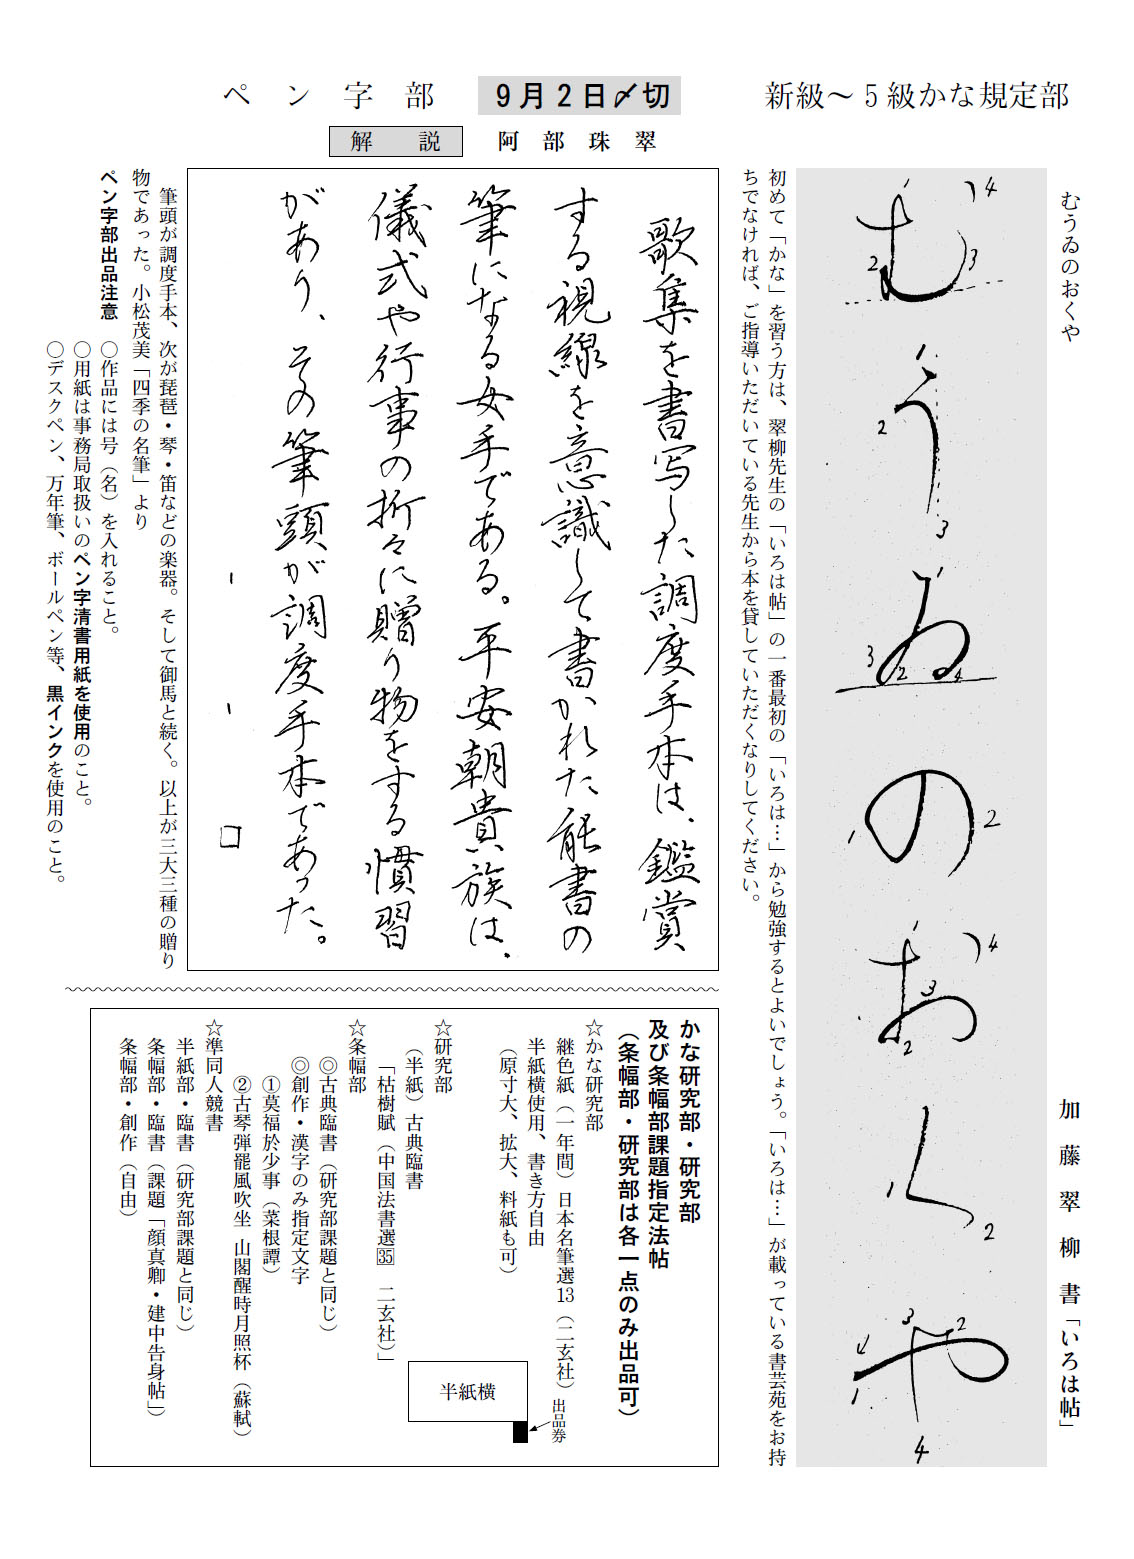 新級～5級かな規定部
むうゐのおくや
加藤翠柳書「いろは帖」
むうゐのおくや
初めて「かな」を習う方は、翠柳先生の「いろは帖」の一番最初の「いろは…」から勉強するとよいでしょう。「いろは…」が載っている書芸苑をお持
ちでなければ、ご指導いただいている先生から本を貸していただくなりしてください。
ペン字部
9月2日〆切
解説 阿部珠翠
歌集を書写した調度手本は、鑑賞
する視線を意識して書かれた能書の
筆になる女手である。平安朝貴族は、
儀式や行事の折々に贈り物をする慣習
があり、その筆頭が調度手本であった。
筆頭が調度手本、次が琵琶・琴・笛などの楽器。そして御馬と続く。以上が三大三種の贈り
物であった。小松茂美「四季の名筆」より
ペン字部出品注意
○作品には号（名）を入れること。
○用紙は事務局取扱いのペン字清書用紙を使用のこと。
○デスクペン、万年筆、ボールペン等、黒インクを使用のこと。
かな研究部・研究部
及び条幅部課題指定法帖
（条幅部・研究部は各一点のみ出品可）
☆かな研究部
継色紙（一年間）日本名筆選13（二玄社）
半紙横使用、書き方自由
（原寸大、拡大、料紙も可）
半紙横
出品券
☆研究部
（半紙）古典臨書
「枯樹賦（中国法書選35 二玄社）」
☆条幅部
◎古典臨書（研究部課題と同じ）
◎創作・漢字のみ指定文字
①莫福於少事（菜根譚）
②古琴弾罷風吹坐 山閣醒時月照杯（蘇軾）
☆準同人競書
半紙部・臨書（研究部課題と同じ）
条幅部・臨書（課題「顔真卿・建中告身帖」）
条幅部・創作（自由）